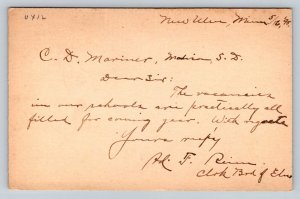 UX12
New Ulm, Minn 5/6,
C. D. Mariner, S. D.
Dear Sir:
The vacancies
in our schools are practically all
filled for coming year. With regrets
Yours
F.
Clrk Brd of